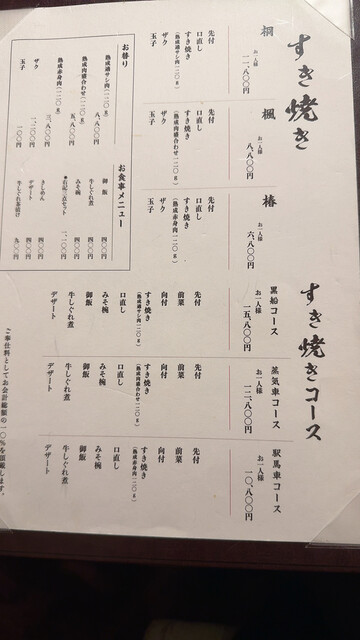 すき焼き
桐
お一人様
一一、八〇〇円
先付
口直し
すき焼き
(熟成適サシ肉一二〇g)
ザク
玉子
楓
お一人様
八、八〇〇円
先付
口直し
すき焼き
(熟成肉盛合わせ一二〇g)
ザク
玉子
椿
お一人様
六、八〇〇円
先付
口直し
すき焼き
(熟成赤身肉一二〇g)
ザク
玉子
お替り
熟成適サシ肉(一二〇g)
八、八〇〇円
熟成肉盛合わせ(一二〇g)
五、八〇〇円
熟成赤身肉(一二〇g)
三、八〇〇円
ザク
一、二〇〇円
玉子
一〇〇円
お食事メニュー
御飯
四〇〇円
牛しぐれ煮
四〇〇円
みそ椀
四〇〇円
●右記三点セット
一、一〇〇円
きしめん
四〇〇円
デザート
四〇〇円
牛しぐれ茶漬け
九〇〇円
すき焼きコース
黒船コース
お一人様
一五、八〇〇円
先付
前菜
向付
すき焼き
(熟成適サシ肉一二〇g)
口直し
みそ椀
御飯
牛しぐれ煮
デザート
蒸気車コース
お一人様
一二、八〇〇円
先付
前菜
向付
すき焼き
(熟成肉盛合わせ一二〇g)
口直し
みそ椀
御飯
牛しぐれ煮
デザート
駅馬車コース
お一人様
一〇、八〇〇円
先付
前菜
向付
すき焼き
(熟成赤身肉一二〇g)
口直し
みそ椀
御飯
牛しぐれ煮
デザート
ご奉仕料としてお会計総額の一〇%を頂戴します。